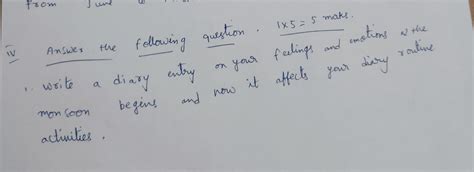 From June to
iv Answer the following question. 1x5=5 marks.
1. Write a diary entry on your feelings and emotions as the
monsoon begins and how it affects your diary routine
activities.